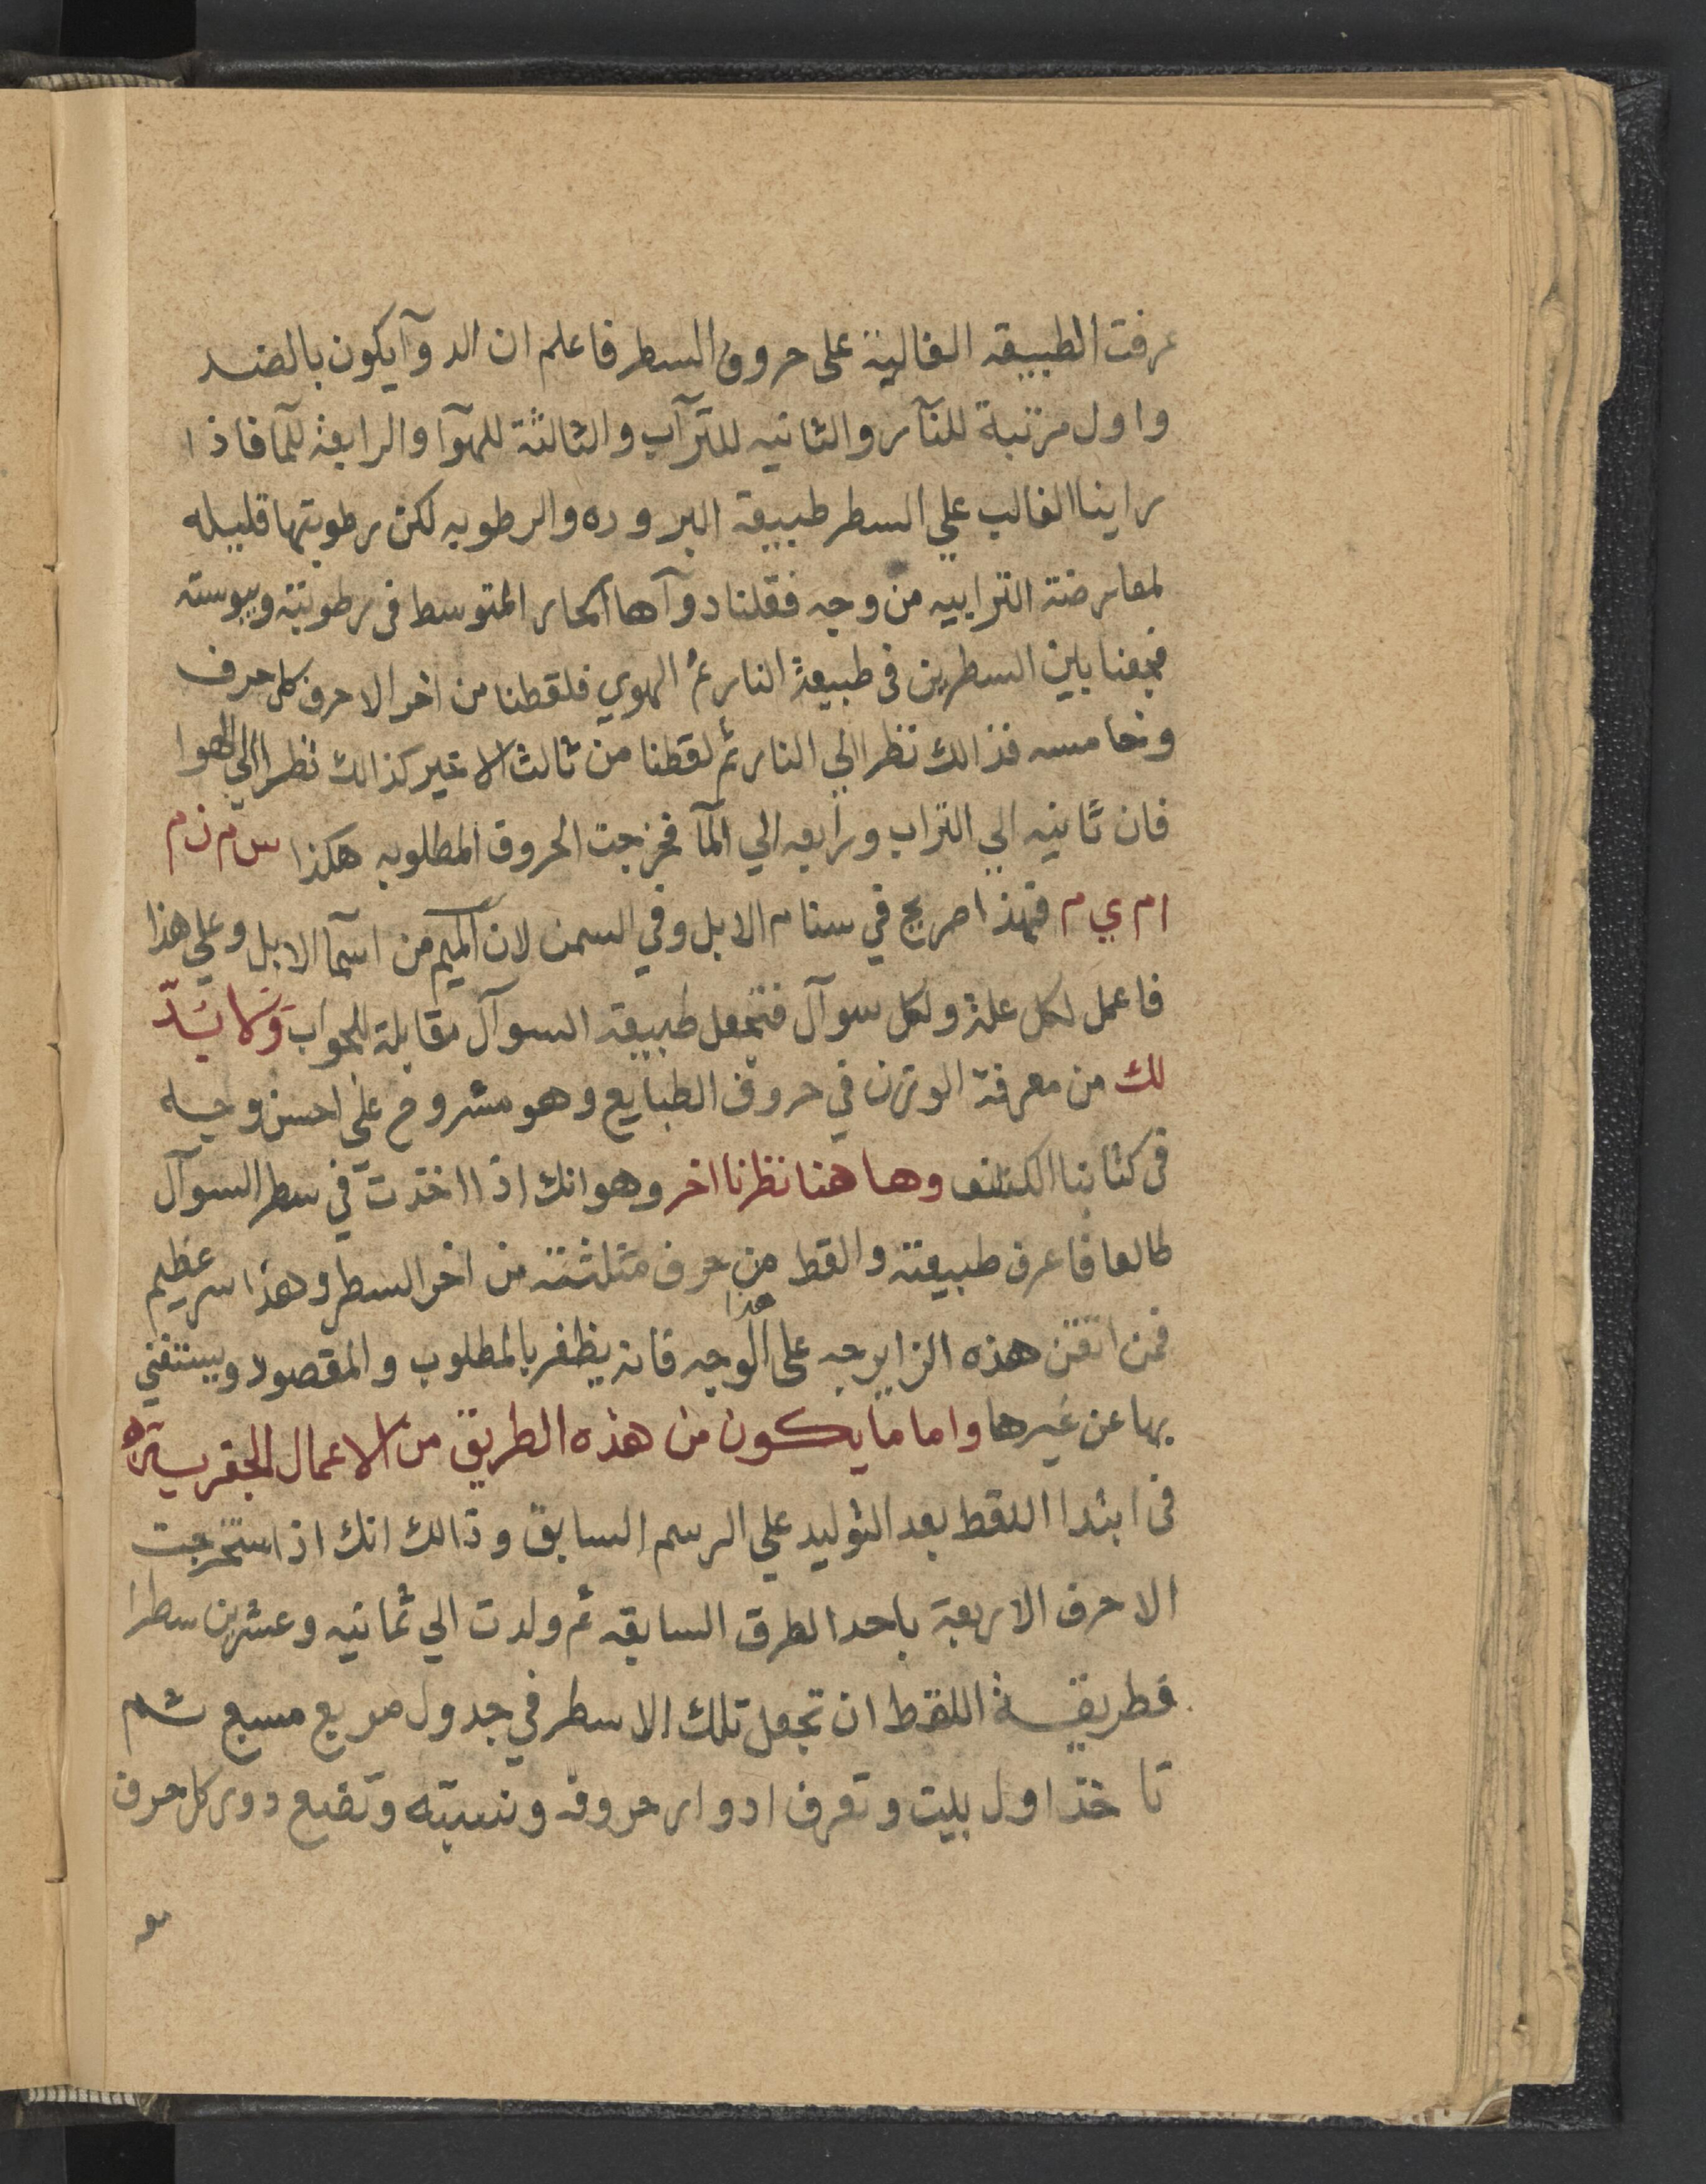 عرفت الطبيعة الغالبة على حروف السطر فاعلم ان الدوآ يكون بالضد
واول مرتبة للنآر والثانيه للترآب والثالثة للهوآ والرابعة للمآ فاذا
راينا الغالب علي السطر طبيعة البروده والرطوبه لكن رطوبتها قليله
لمعارضة الترابيه من وجه فقلنا دوآها الحار المتوسط في رطوبته ويبوسته
فجمعنا بين السطرين في طبيعة النار ثم الهوي فلقطنا من اخر الاحرف كل حرف
وخامسه فذالك نظرا الي النار ثم لقطنا من ثالث الاخير كذالك نظرا الي الهوا
فان ثانيه الي التراب ورابعه الي المآ فخرجت الحروف المطلوبه هكذا س م ن م
ا م ي م فهذا صريح في سنام الابل وفي السمن لان الميم من اسمآ الابل وعلي هذا
فاعمل لكل علة ولكل سوآل فتجعل طبيعة السوآل مقابلة للجواب ولا بد
لك من معرفة الوزن في حروف الطبايع وهو مشروح علي احسن وجه
في كتابنا الكشف وهاهنا نظرنا اخر وهو انك اذا اخذت في سطر السوآل
طالعا فاعرف طبيعته والقط من حرف مثلثته من اخر السطر وهذا سر عظيم
فمن اتقن هذه الزايرجه على هذا الوجه فانه يظفر بالمطلوب والمقصود ويستغني
بها عن غيرها واما ما يكون من هذه الطريق من الاعمال الجفريه
في ابتدا اللقط بعد التوليد علي الرسم السابق وذالك انك اذا استخرجت
الاحرف الاربعة باحد الطرق السابقه ثم ولدت الي ثمانيه وعشرين سطرا
فطريقة اللقط ان تجعل تلك الاسطر في جدول مربع مسبع ثم
تاخذ اول بيت وتعرف ادوار حروفه ونسبته وتضع دور كل حرف